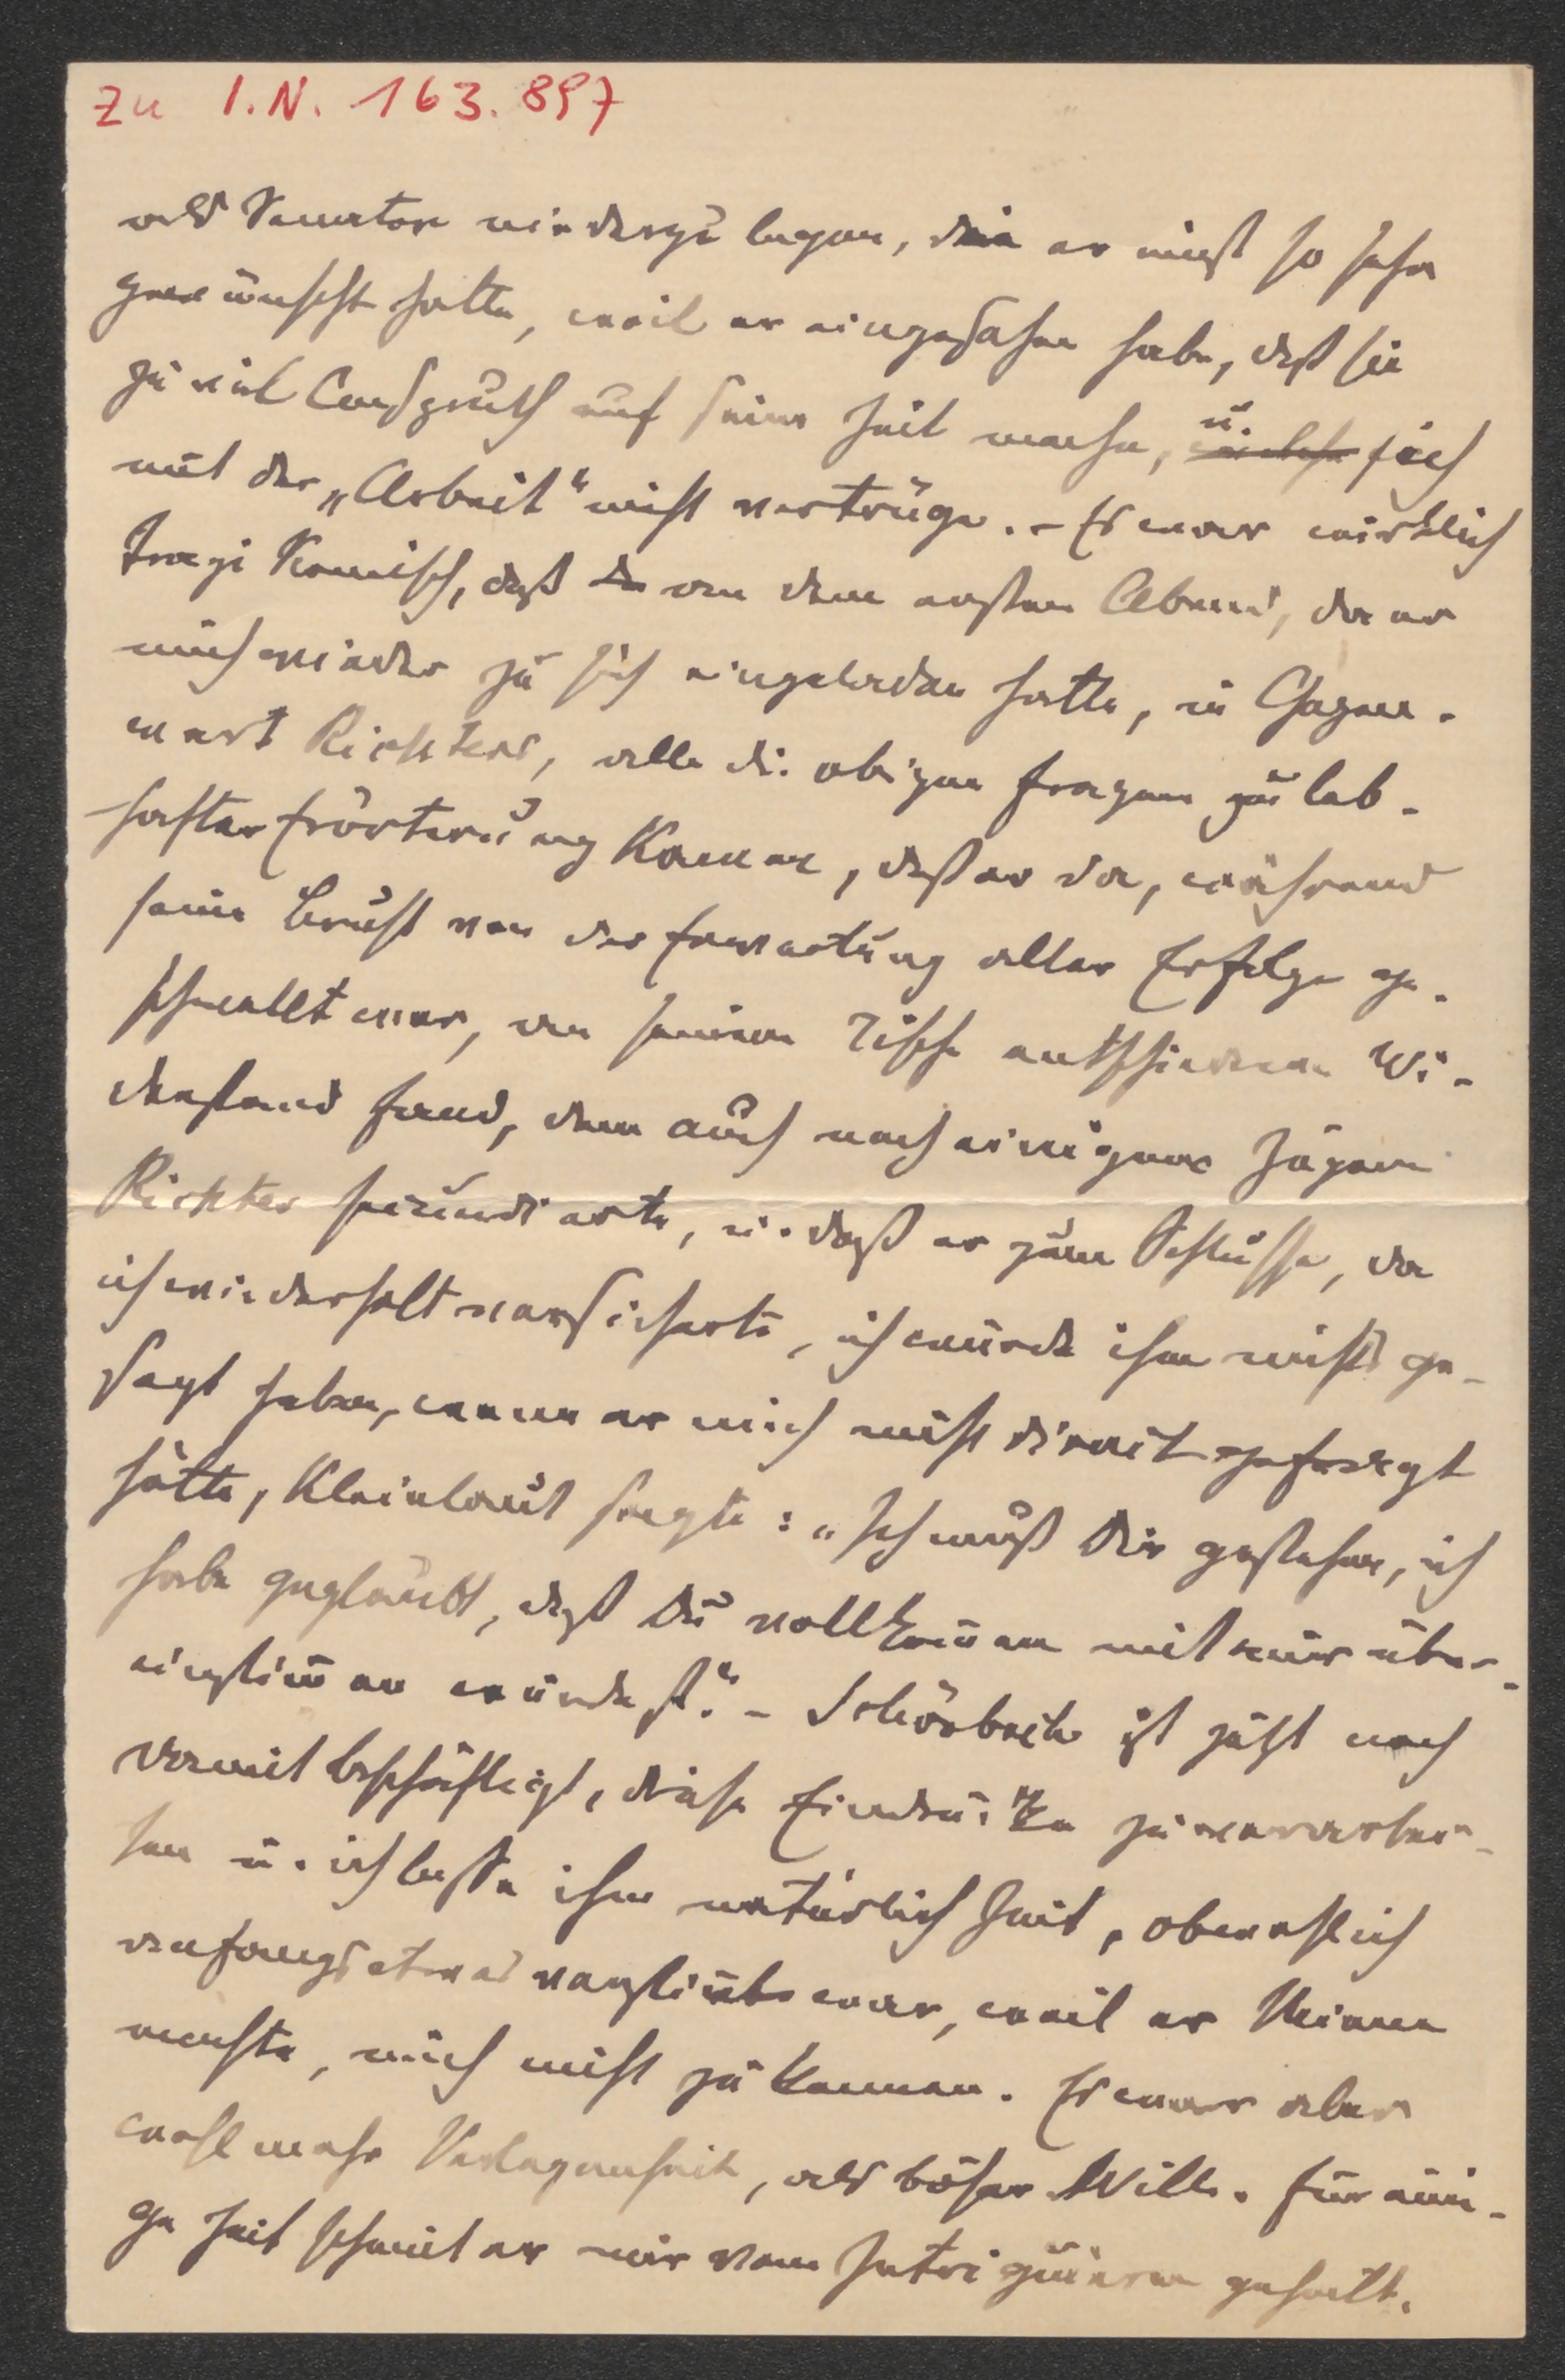 Zu I.N. 163.897
als Senator niederzulegen, die er einst so sehr
gewünscht hatte, weil er eingesehen habe, daß sie
zu viel Anspruch auf seine Zeit mache, u. sich
mit der „Arbeit“ nicht vertrüge. – Es war wirklich
tragi komisch, daß an dem ersten Abend, da er
mich wieder zu sich eingeladen hatte, in Gegen-
wart Richters, alle die obigen Fragen zu leb-
hafter Erörterung kamen, daß er da, während
seine Brust von der Erwartung aller Erfolge ge-
schwellt war, an seinem Tische entschiedenen Wi-
derstand fand, dem auch nach einigem Zögern
Richter secundierte, u. daß er zum Schlusse, da
ich wiederholt versicherte, ich würde ihm nichts ge-
sagt haben, wenn er mich nicht direct gefragt
hätte, kleinlaut sagte: „Ich muß Dir gestehen, ich
habe geglaubt, daß Du vollkom̅en mit mir über-
einstim̅en würdest.“ – Schönbach ist jetzt noch
damit beschäftigt, diese Eindrücke zu verarbei-
ten u. ich lasse ihm natürlich Zeit, obwohl ich
anfangs etwas war, weil er Mienen
machte, mich nicht zu kennen. Es war aber
wohl mehr Verlegenheit, als böser Wille. Für eini-
ge Zeit scheint er mir vom Intriguieren geheilt.